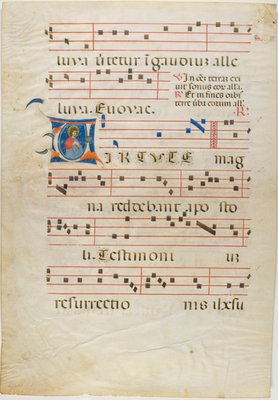 luya vertetur in gaudium alle
V In oem terram exi
vit sonus eor. alla.
R Et in fines orbis
terre uba eorum all.
luya. Euovae.
R.
VIRTUTE mag
na reddebant apo sto
li. Testimoni um
resurrectio nis ihxsu